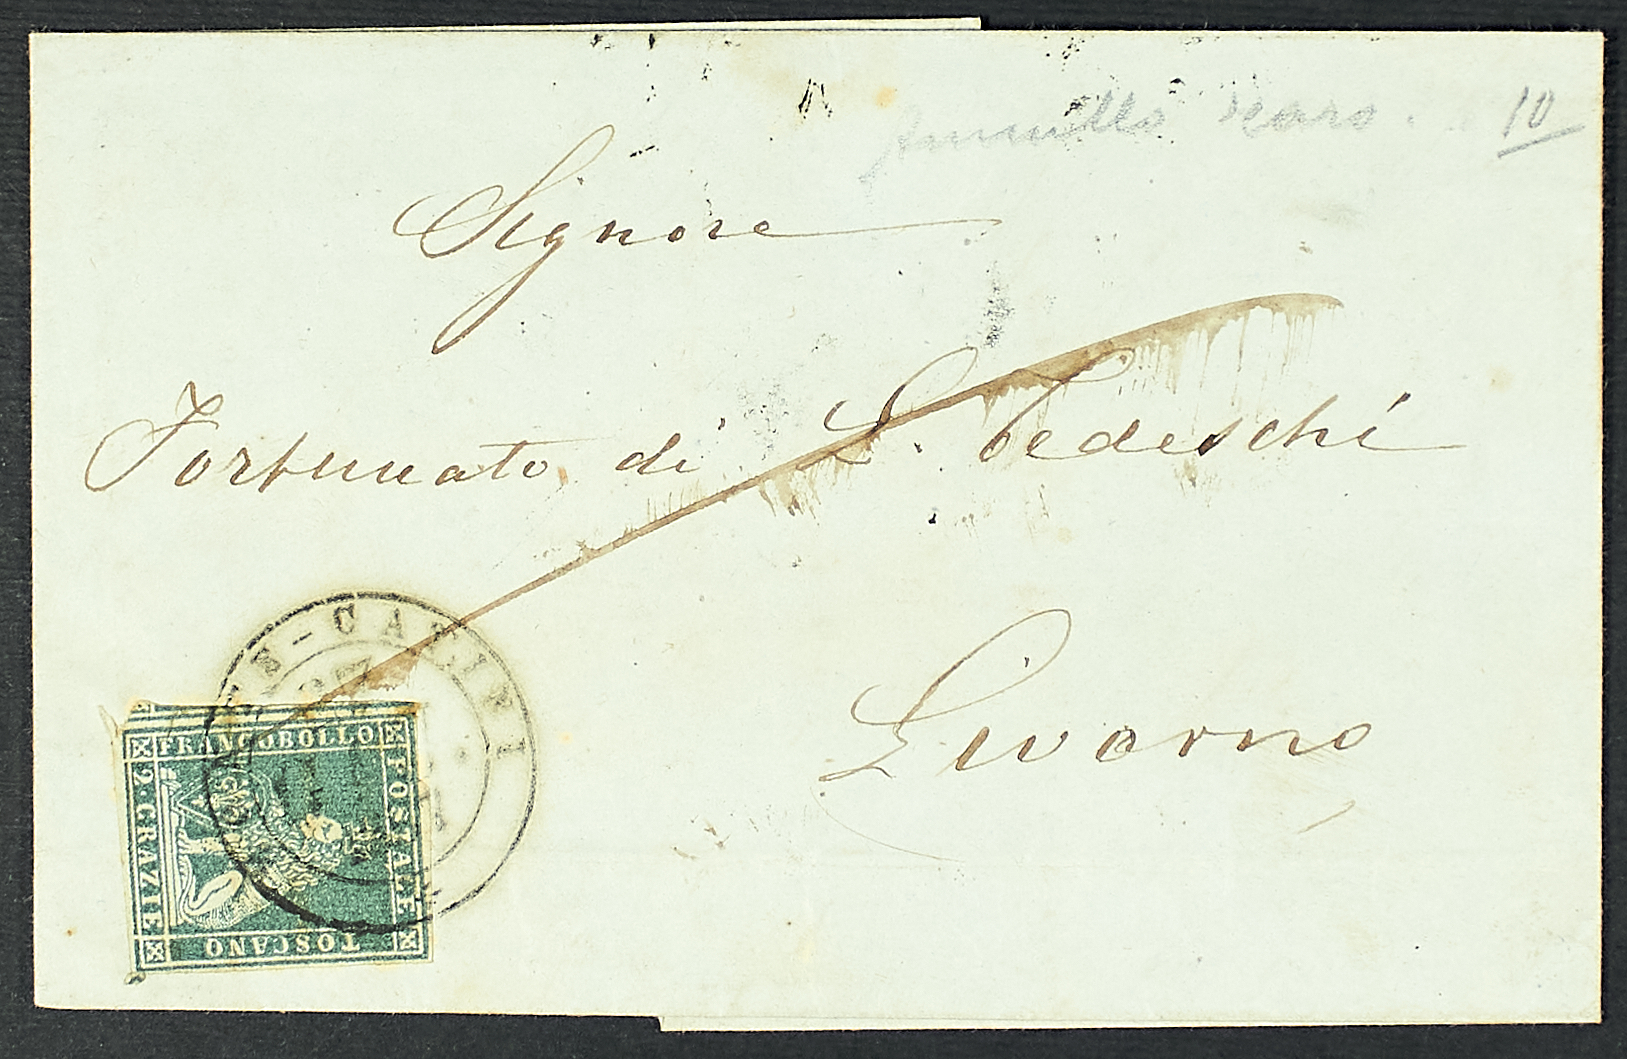 10
Signore
Fortunato di L. Tedeschi
Livorno
FRANCOBOLLO
POSTALE
TOSCANO
2·CRAZIE